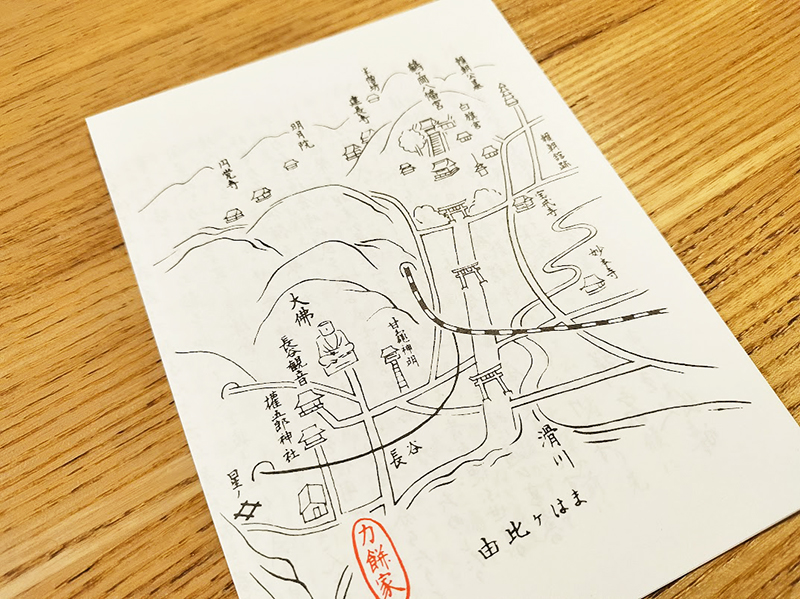 上行寺
鶴ヶ岡八幡宮
頼朝公墓
建長寺
白旗宮
明月院
円覚寺
宝戒寺
妙本寺
大佛
長谷観音
甘縄神明
權五郎神社
長谷
星ノ井
滑川
由比ヶはま
力餅家